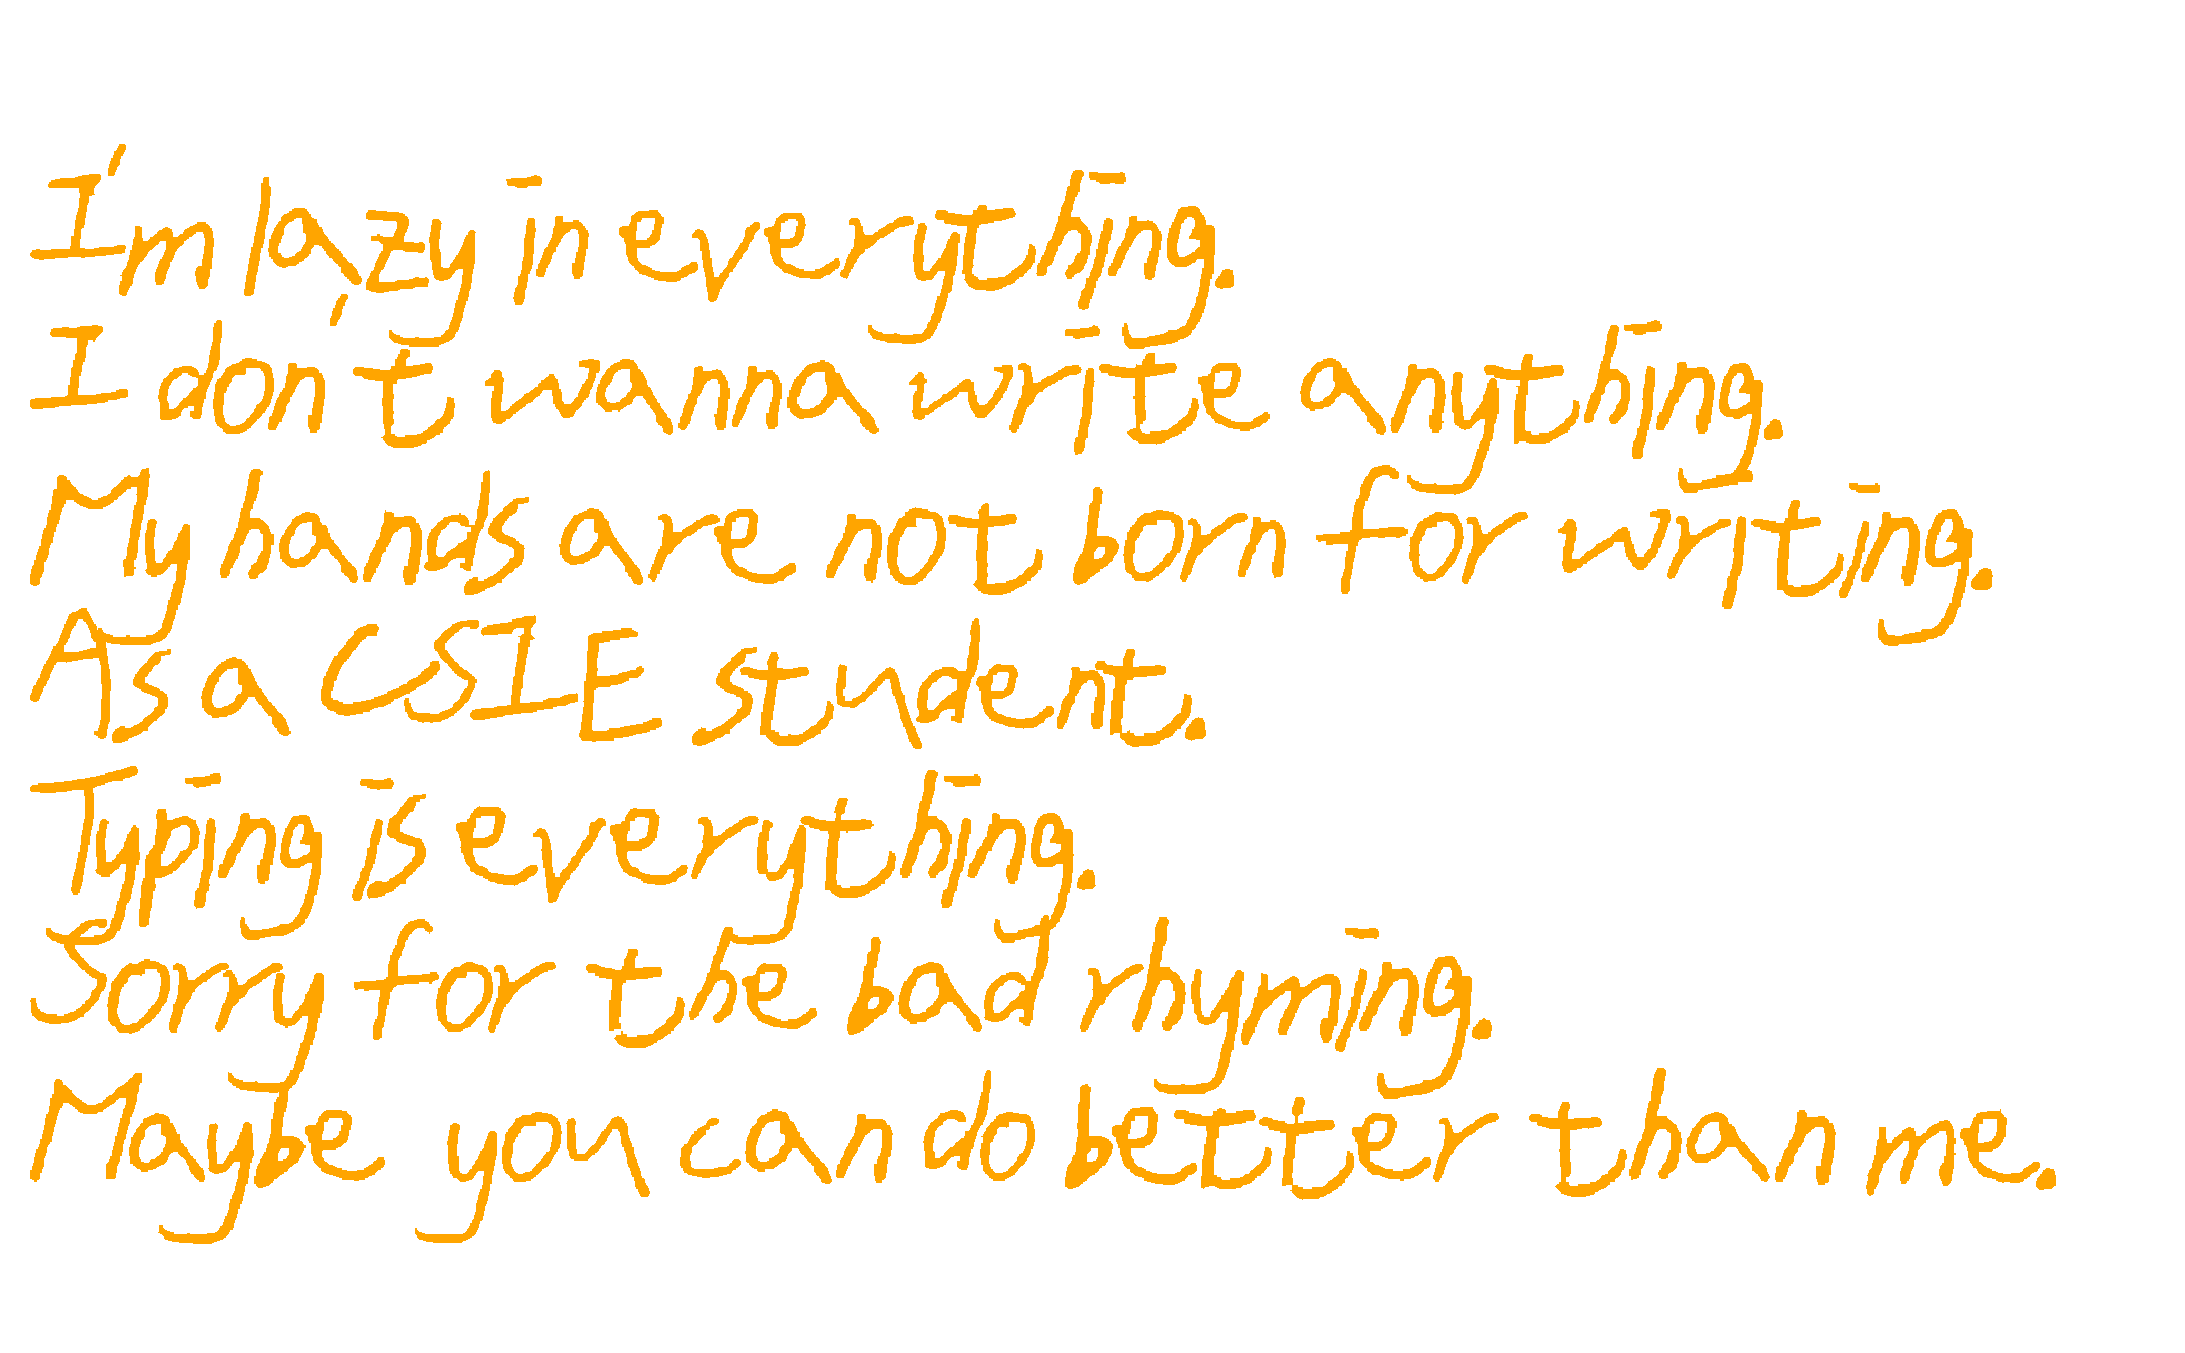 I'm lazy in everything.
I don't wanna write anything.
My hands are not born for writing.
As a CSIE student.
Typing is everything.
Sorry for the bad rhyming.
Maybe you can do better than me.